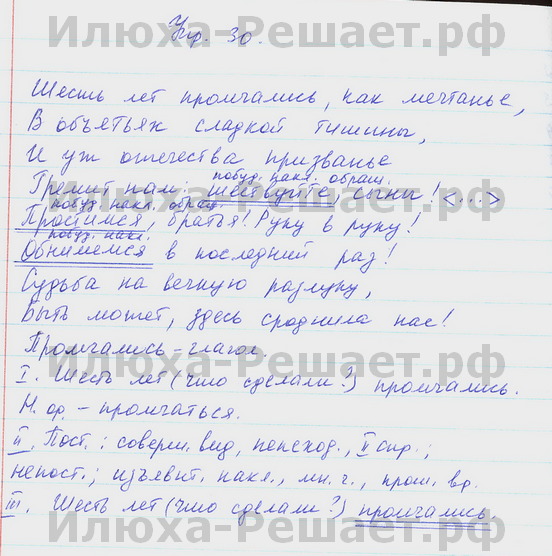 Илюха-Решает.рф
Упр. 30.
Шесть лет промчались, как мечтанье,
В объятьях сладкой тишины,
И уж отечества призванье
побуд. накл. обращ.
Гремит нам: шествуйте, сыны! <...>
побуд. накл. обращ.
Простимся, братья! Руку в руку!
побуд. накл.
Обнимемся в последний раз!
Судьба на вечную разлуку,
Быть может, здесь сроднила нас!
Илюха-Решает.рф
Промчались – глагол.
I. Шесть лет (что сделали?) промчались.
Н. ф. – промчаться.
II. Пост.: соверш. вид, непереход., II спр.;
непост.; изъявит. накл., мн. ч., прош. вр.
III. Шесть лет (что сделали?) промчались.
Илюха-Решает.рф